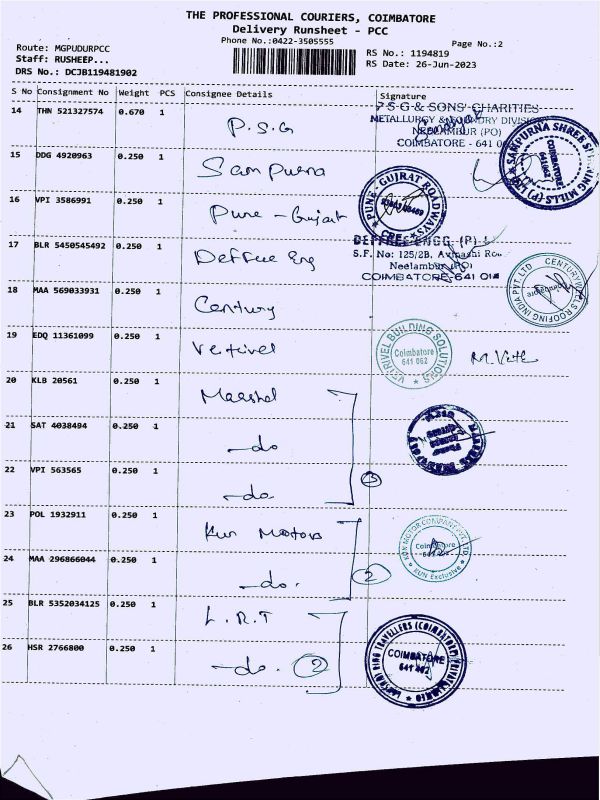 THE PROFESSIONAL COURIERS, COIMBATORE
Delivery Runsheet - PCC
Phone No.:0422-3505555
Page No.:2
Route: MGPUDURPCC
Staff: RUSHEEP...
DRS No.: DCJB119481902
RS No.: 1194819
RS Date: 26-Jun-2023
S No Consignment No Weight PCS Consignee Details Signature
14 THN 521327574 0.670 1 P.S.G
P.S.G & SONS' CHARITIES
METALLURGY & FOUNDRY DIVISION
NEELAMBUR (PO)
COIMBATORE - 641 0
15 DDG 4920963 0.250 1 Sampurna
SAMPURNA SHREE SPINNING MILLS (P) LTD
COIMBATORE
16 VPI 3586991 0.250 1 Pune - Gujrat
PUNE - GUJRAT ROADWAYS
CBE
17 BLR 5450545492 0.250 1 Deffree Eng
DEFFREE ENGG. (P) L
S.F. No: 125/2B, Avinashi Roa
Neelambur (PO)
COIMBATORE-641 014
18 MAA 569033931 0.250 1 Century
CENTURYWELS ROOFING INDIA PVT. LTD
19 EDQ 11361099 0.250 1 Vetrivel
VETRIVEL BUILDING SOLUTIONS
Coimbatore
641 062
M.Vith
20 KLB 20561 0.250 1 Marshal
21 SAT 4038494 0.250 1 -do
22 VPI 563565 0.250 1 -do
3
23 POL 1932911 0.250 1 Kun Motors
KUN MOTOR COMPANY PVT. LTD.
Coimbatore
KUN Exclusive
24 MAA 296866044 0.250 1 -do. 2
25 BLR 5352034125 0.250 1 L.R.T
26 HSR 2766800 0.250 1 -do. 2
KING TRAVELLERS (COIMBATORE) PRIVATE LIMITED
COIMBATORE
641 402